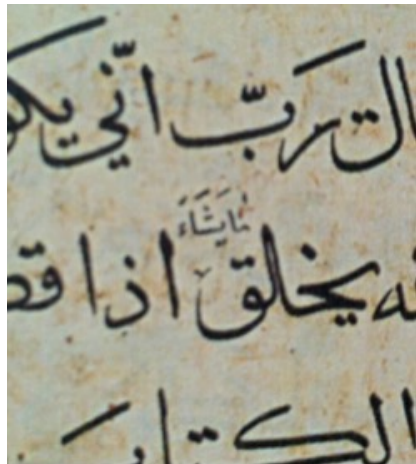 الت رَبّ انّي يكو
مَايَشَاءُ
ـه يخلق اذا قضـ
الكتابَ